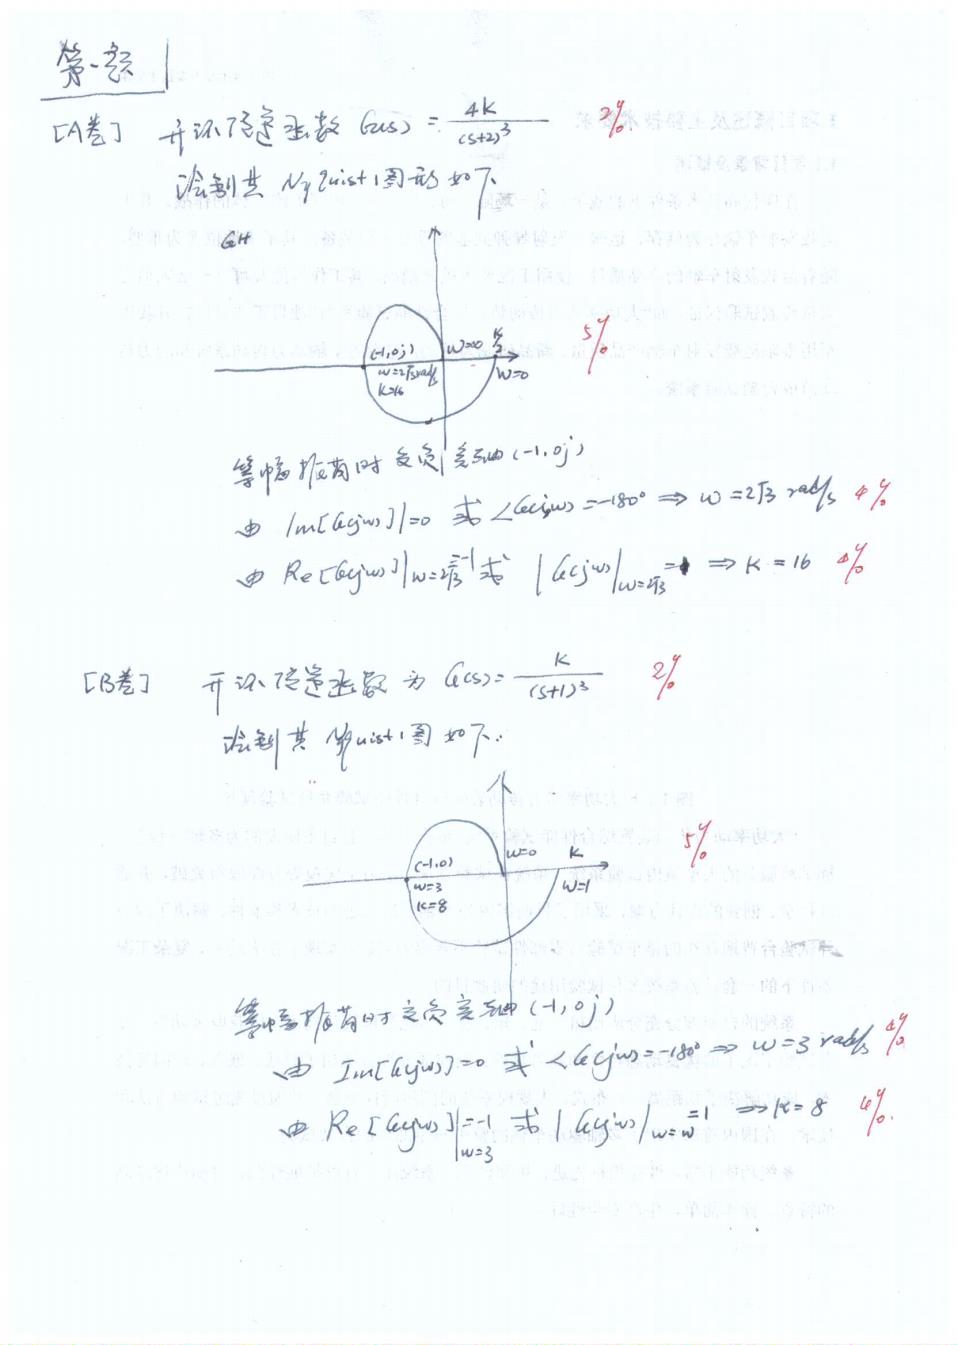 第一题
[A卷] 开环传递函数 G(s) = 4K/(s+2)³ 2分
绘制其 Nyquist 图形如下
GH
(-1,0j) ω=∞ K/2
ω=2√3 rad/s ω=0
K=16
5分
等幅振荡时交负实轴 (-1,0j)
由 Im[G(jω)]=0 或 ∠G(jω)=-180° ⇒ ω=2√3 rad/s 4分
由 Re[G(jω)]|ω=2√3 =-1 或 |G(jω)|ω=2√3 =1 ⇒ K=16 4分
[B卷] 开环传递函数为 G(s)= K/(s+1)³ 2分
绘制其 Nyquist 图如下:
(-1,0) ω=0 K
ω=3 ω=1
K=8
5分
等幅振荡时交负实轴 (-1,0j)
由 Im[G(jω)]=0 或 ∠G(jω)=-180° ⇒ ω=3 rad/s 4分
由 Re[G(jω)]|ω=3 =-1 或 |G(jω)|ω=ω =1 ⇒ K=8 4分